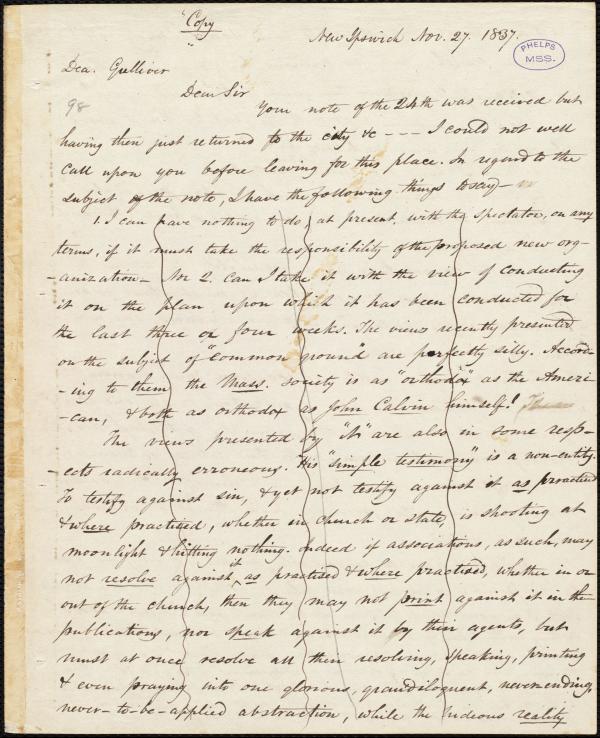 "Copy"
New Ipswich Nov. 27. 1837.
PHELPS
MSS.
Dea. Gulliver
Dear Sir
98
Your note of the 24th was received but
having then just returned to the city &c - - - I could not well
call upon you before leaving for this place. In regard to the
subject of the note, I have the following things to say -
1. I can have nothing to do, at present, with the Spectator, on any
terms, if it must take the responsibility of the proposed new org-
-anization - Nor 2. can I take it with the view of conducting
it on the plan upon which it has been conducted for
the last three or four weeks. The views recently presented
on the subject of "common ground" are perfectly silly. Accord-
-ing to them the Mass. society is as "orthodox" as the Ameri-
-can, & both as orthodox as John Calvin himself!
The views presented by "A" are also in some resp-
-ects radically erroneous. His "simple testimony" is a non-entity.
To testify against sin, & yet not testify against it as practised
& where practised, whether in church or state, is shooting at
moonlight & hitting nothing. Indeed if associations, as such, may
not resolve against it, as practised & where practised, whether in or
out of the church, then they may not print against it in the
publications, nor speak against it by their agents, but
must at once resolve all their resolving, speaking, printing
& even praying into one glorious, grandiloquent, never-ending,
never-to-be-applied abstraction, while the hideous reality